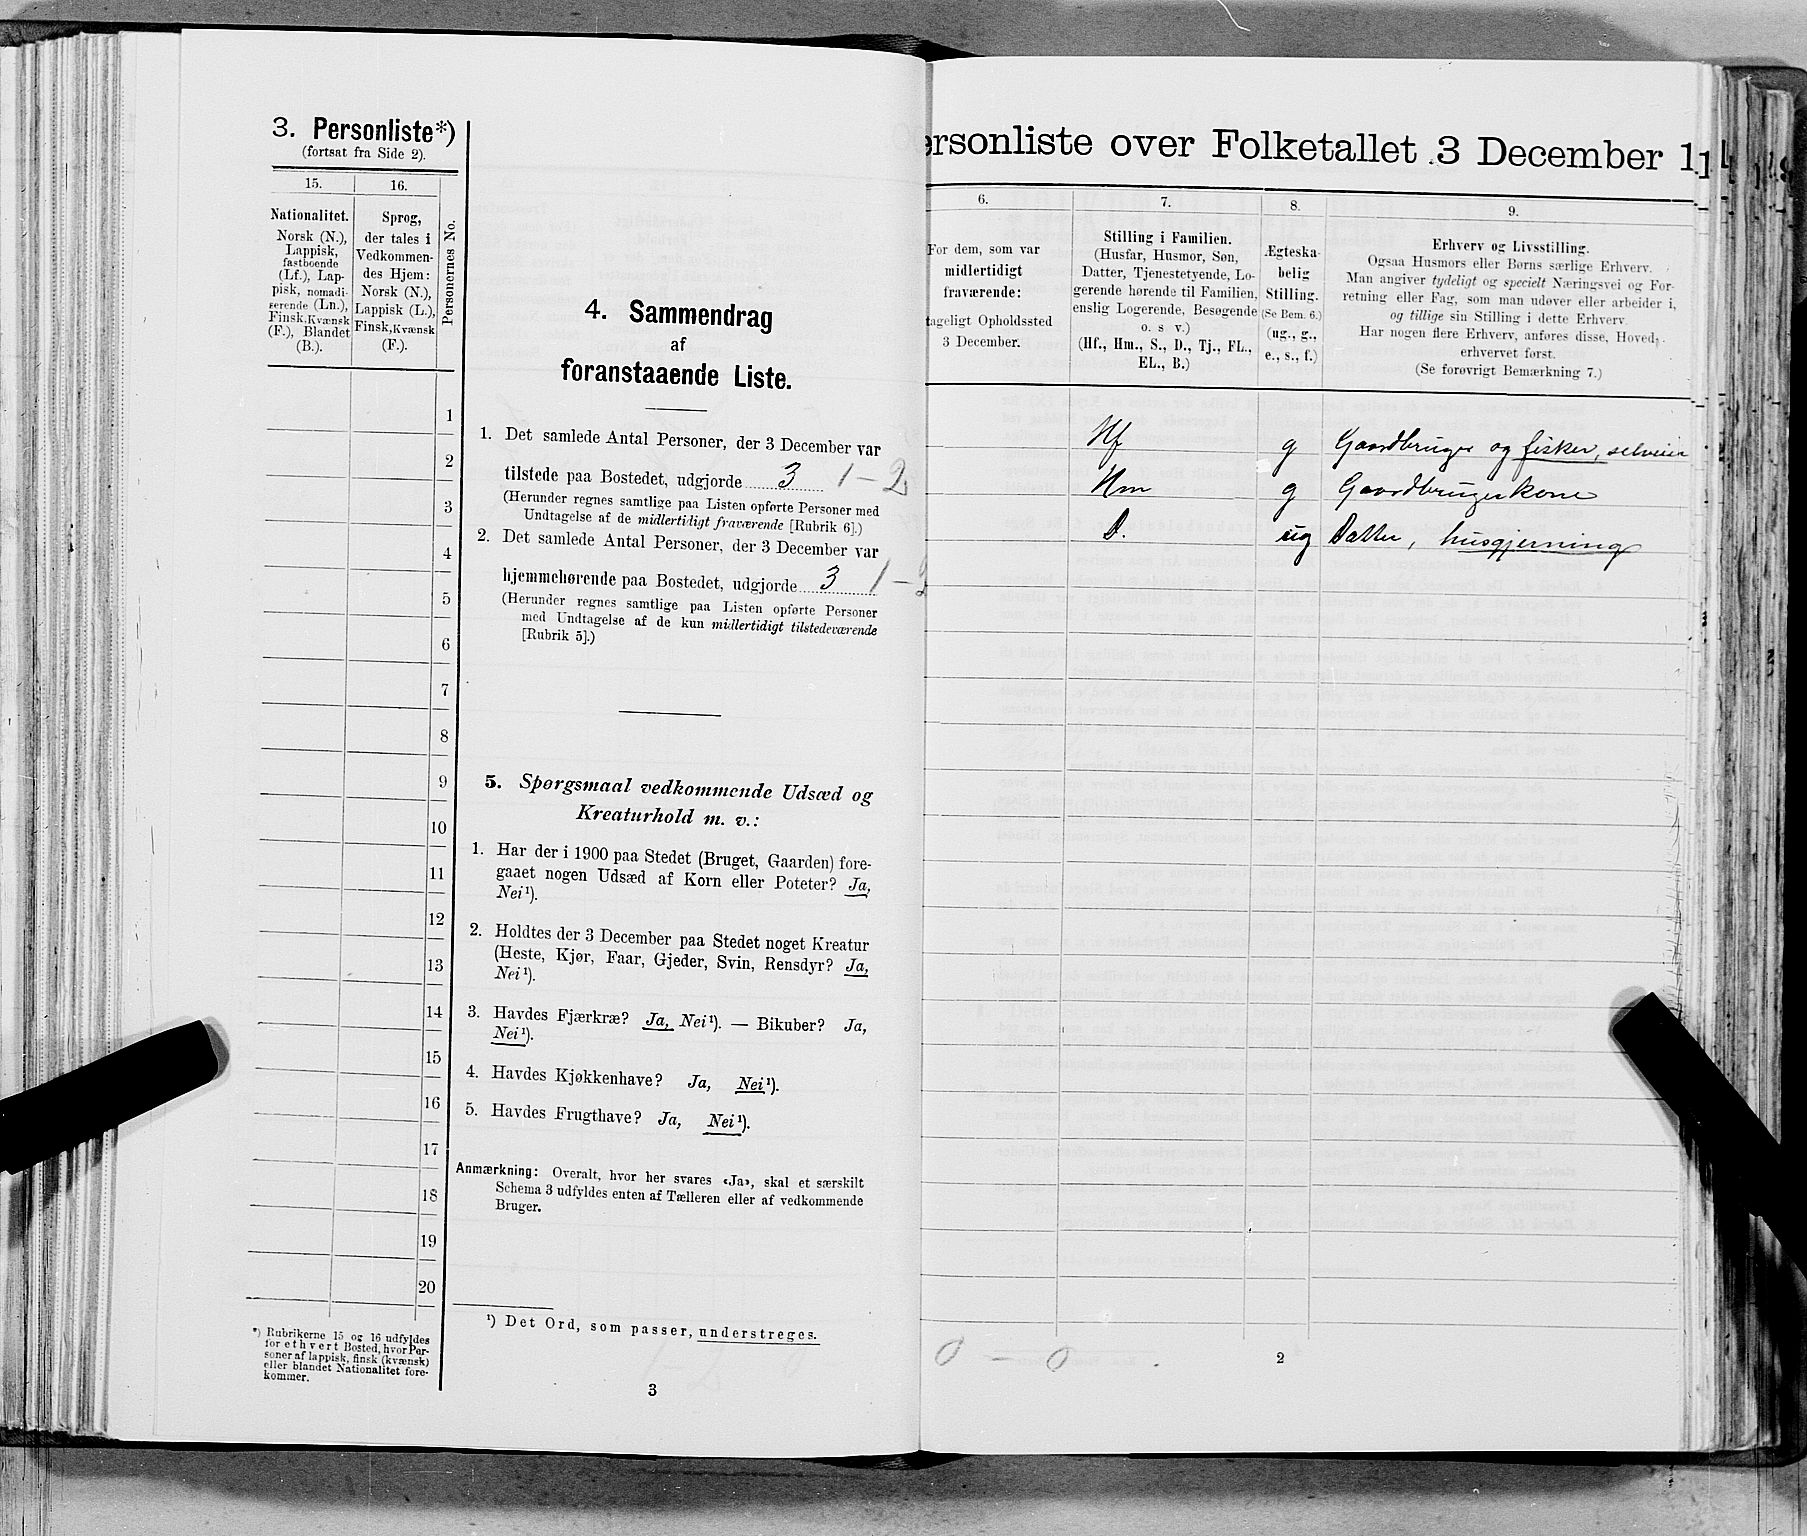 3. Personliste*)
(fortsat fra Side 2).
15.
16.
Nationalitet.
Norsk (N.),
Lappisk,
fastboende
(Lf.), Lap-
pisk, nomadi-
serende (Ln.),
Finsk, Kvænsk
(F.), Blandet
(B.).
Sprog,
der tales i
Vedkommen-
des Hjem:
Norsk (N.),
Lappisk (L.),
Finsk, Kvænsk
(F.).
Personernes No.
1
2
3
4
5
6
7
8
9
10
11
12
13
14
15
16
17
18
19
20
*) Rubrikerne 15 og 16 udfyldes
for ethvert Bosted, hvor Per-
soner af lappisk, finsk (kvænsk)
eller blandet Nationalitet fore-
kommer.
4. Sammendrag
af
foranstaaende Liste.
1. Det samlede Antal Personer, der 3 December var
tilstede paa Bostedet, udgjorde 3 1 - 2
(Herunder regnes samtlige paa Listen opførte Personer med
Undtagelse af de midlertidigt fraværende [Rubrik 6].)
2. Det samlede Antal Personer, der 3 December var
hjemmehørende paa Bostedet, udgjorde 3 1 - 2
(Herunder regnes samtlige paa Listen opførte Personer
med Undtagelse af de kun midlertidigt tilstedeværende
[Rubrik 5].)
5. Spørgsmaal vedkommende Udsæd og
Kreaturhold m. v.:
1. Har der i 1900 paa Stedet (Bruget, Gaarden) fore-
gaaet nogen Udsæd af Korn eller Poteter? Ja,
Nei¹).
2. Holdtes der 3 December paa Stedet noget Kreatur
(Heste, Kjør, Faar, Gjeder, Svin, Rensdyr? Ja,
Nei¹).
3. Havdes Fjærkræ? Ja, Nei¹). — Bikuber? Ja,
Nei¹).
4. Havdes Kjøkkenhave? Ja, Nei¹).
5. Havdes Frugthave? Ja, Nei¹).
Anmærkning: Overalt, hvor her svares «Ja», skal et særskilt
Schema 3 udfyldes enten af Tælleren eller af vedkommende
Bruger.
¹) Det Ord, som passer, understreges.
3
ersonliste over Folketallet 3 December 1
6.
7.
8.
9.
For dem, som var
midlertidigt
fraværende:
tageligt Opholdssted
3 December.
Stilling i Familien.
(Husfar, Husmor, Søn,
Datter, Tjenestetyende, Lo-
gerende hørende til Familien,
enslig Logerende, Besøgende
o. s v.)
(Hf., Hm., S., D., Tj., FL.,
EL., B.)
Ægteska-
belig
Stilling.
(Se Bem. 6.)
(ug., g.,
e., s., f.)
Erhverv og Livsstilling.
Ogsaa Husmors eller Børns særlige Erhverv.
Man angiver tydeligt og specielt Næringsvei og For-
retning eller Fag, som man udøver eller arbeider i,
og tillige sin Stilling i dette Erhverv.
Har nogen flere Erhverv, anføres disse, Hoved-
erhvervet først.
(Se forøvrigt Bemærkning 7.)
Hf g Gaardbruger og fisker, selveier
Hm g Gaardbrugerkone
D. ug Datter, husgjerning
0 - 0
2